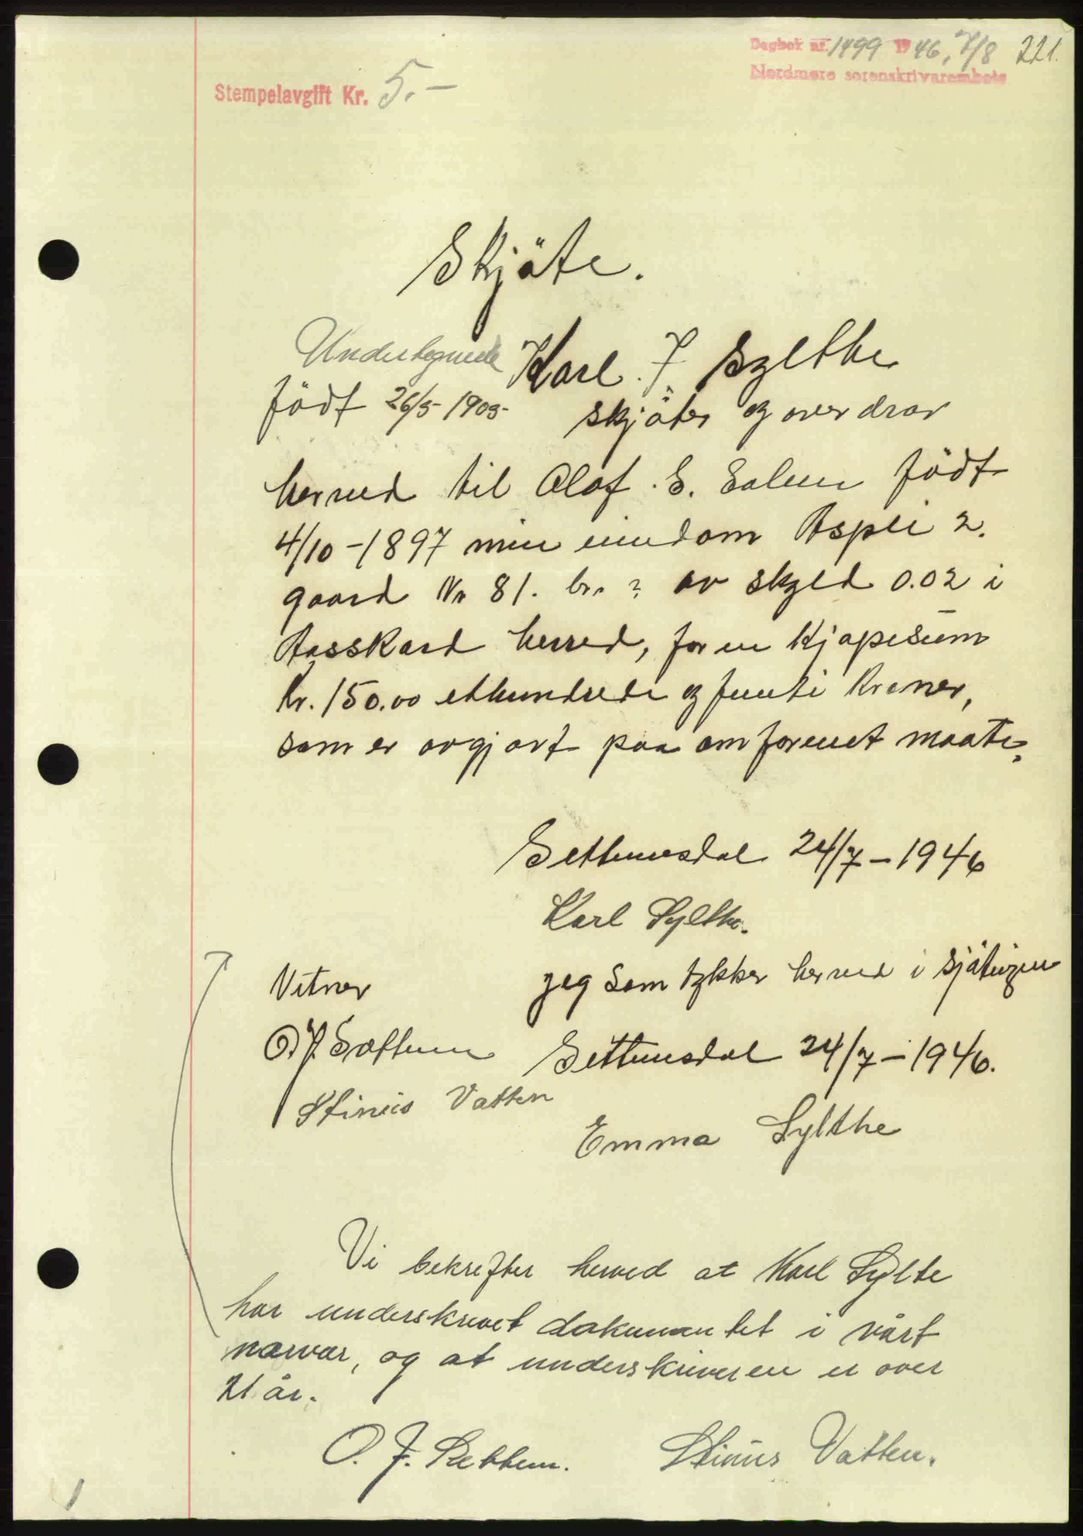 Dagbok nr. 1499 1946, 7/8 221.
Nordmøre sorenskrivarembete
Stempelavgift Kr. 5.-
Skjöte.
Undertegnede Karl J Syltbe
födt 26/5-1905- skjöter og overdrar
herved til Olaf. E. födt
4/10-1897 min eiendom Aspli 2.
gaard Nr 81. br. ? av skyld 0.02 i
Aasskard herred, for en kjøpesum
Kr. 150.00 ethundrede og femti kroner,
som er avgjort paa omforenet maate.
Settemsdal 24/7-1946
Karl Sylthe.
Vitner jeg Samtykker herved i sjötningen
O. J. Settemsdal 24/7-1946.
Stinius Vatten
Emma Sylthe
Vi bekrefter herved at Karl Sylte
har underskrevet dokumentet i vårt
nærvær, og at underskriveren er over
21 år.
O. J. Settem. Stinius Vatten.
1